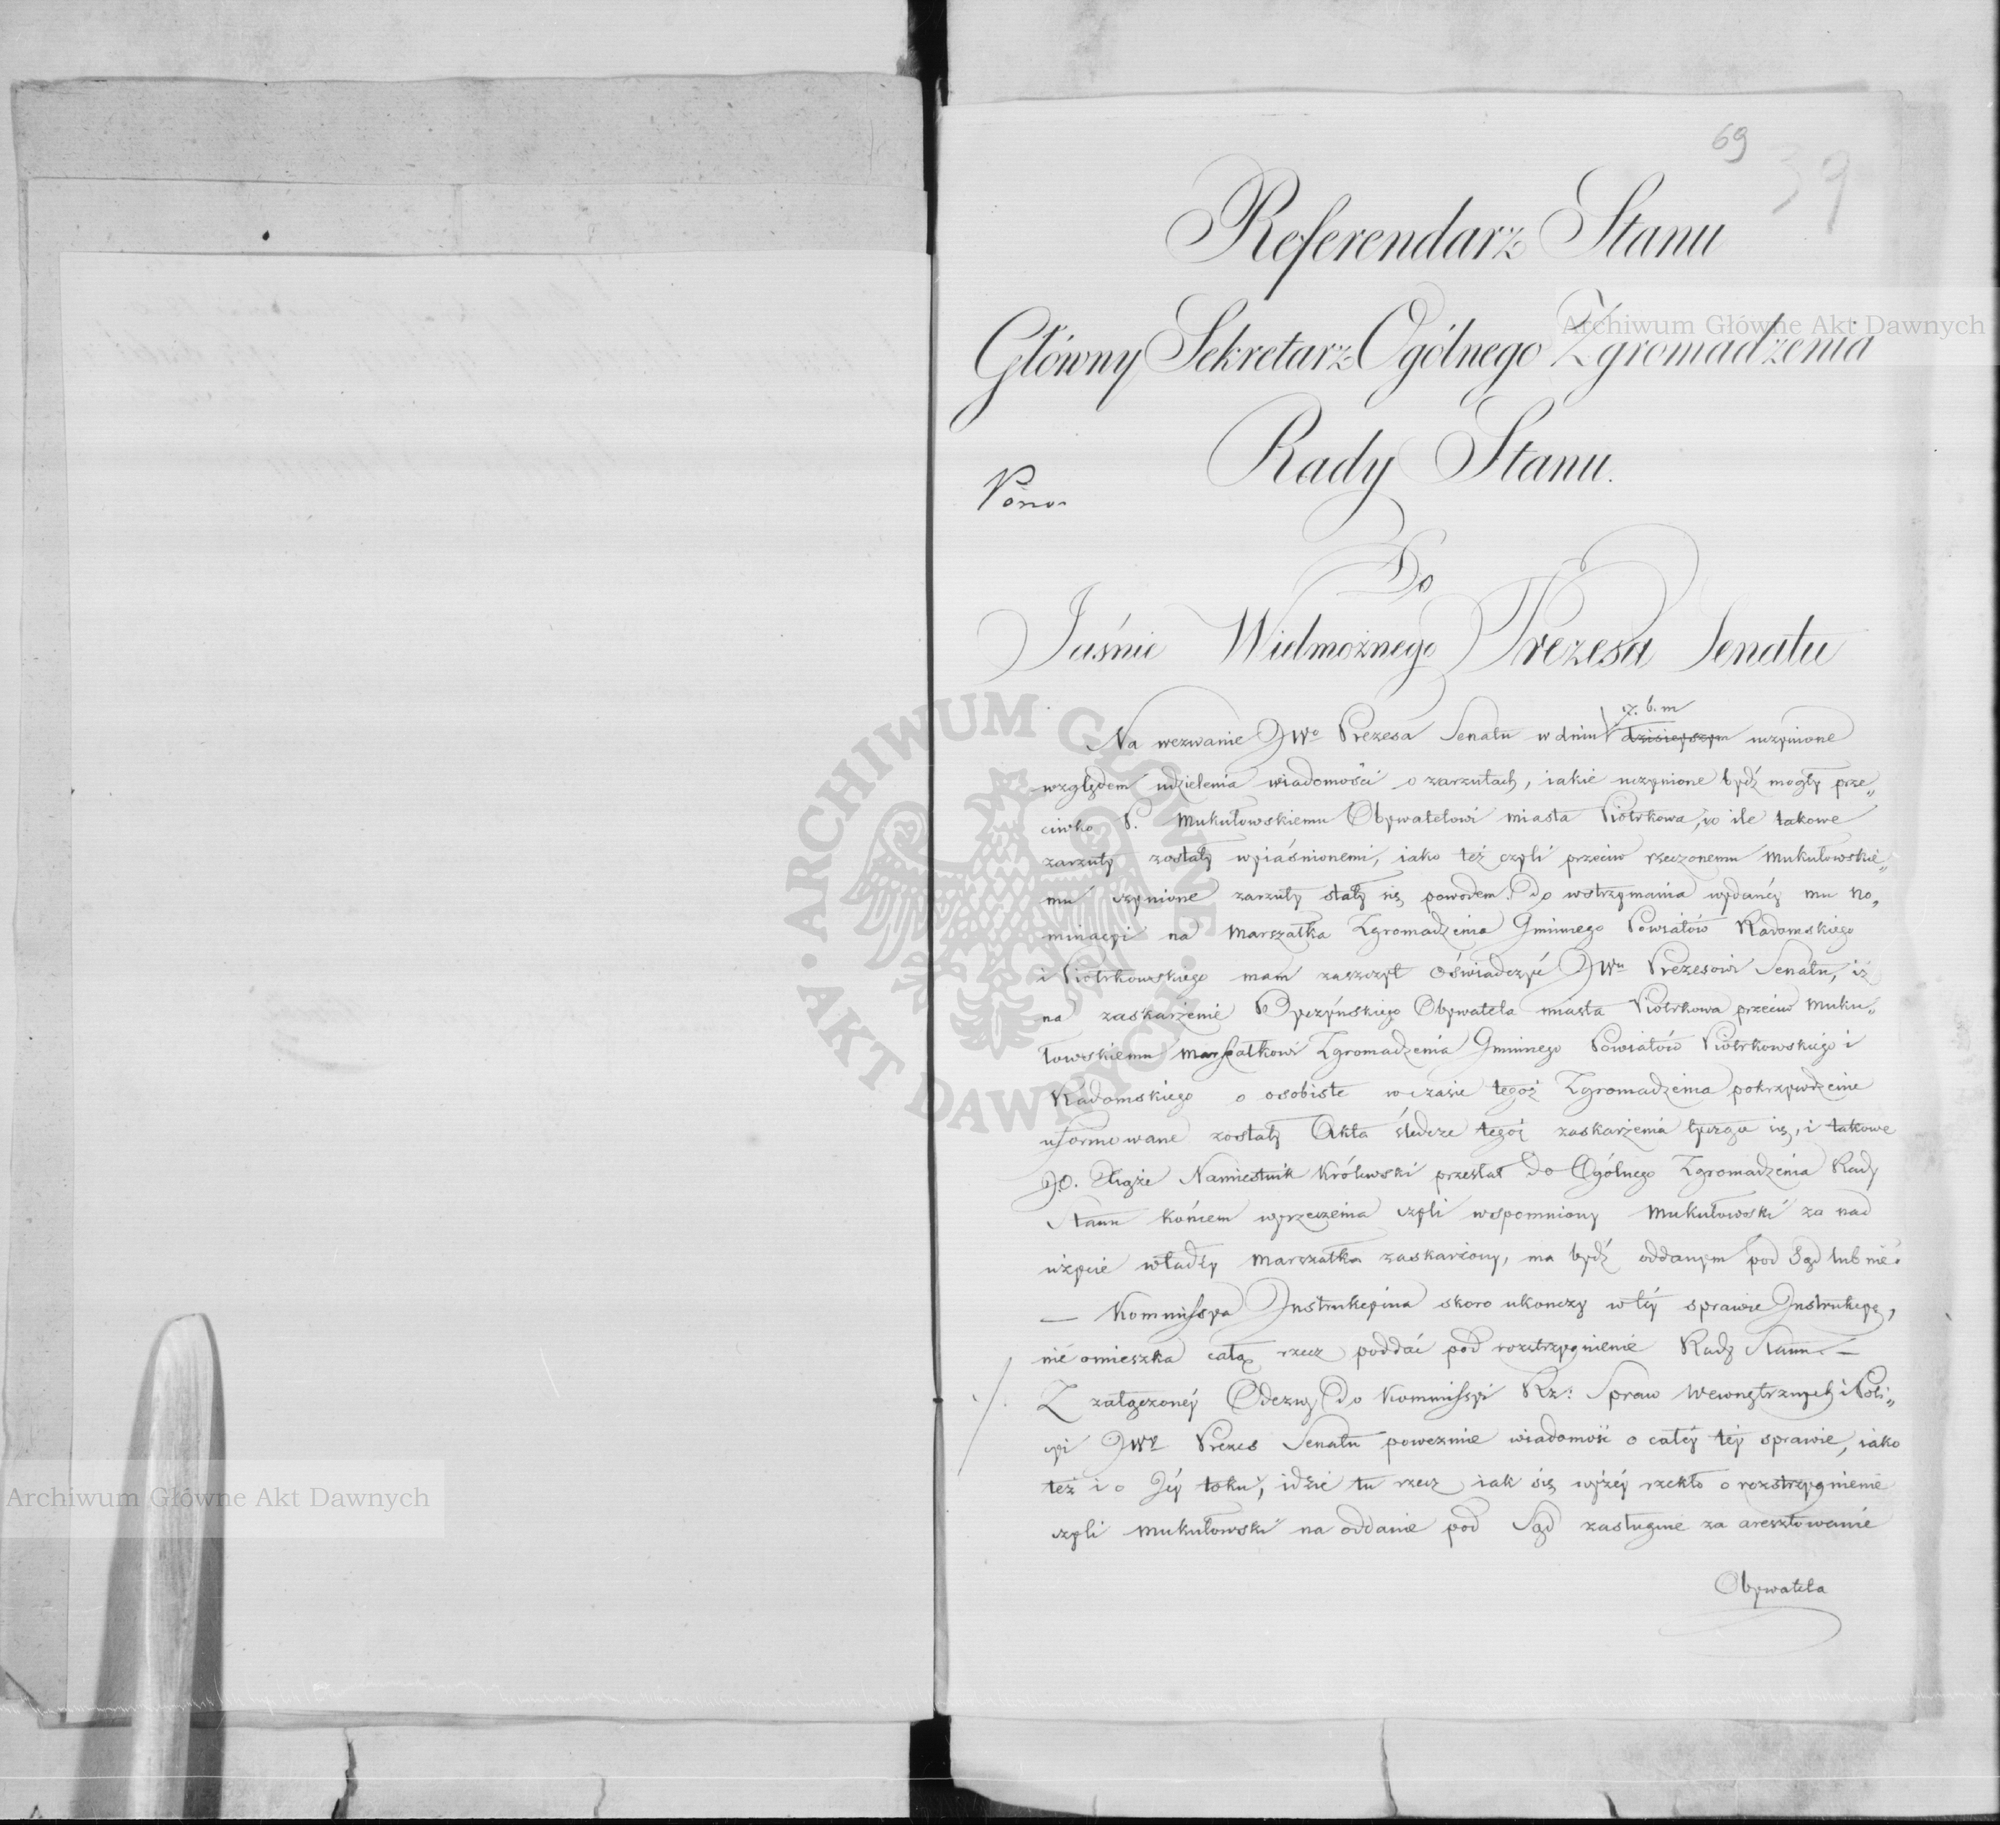 69
39
Referendarz Stanu
Główny Sekretarz Ogólnego Zgromadzenia
Rady Stanu.
Do
Jaśnie Wielmożnego Prezesa Senatu
17. b. m
Na wezwanie JWo Prezesa Senatu w dniu dzisieyszym uczynione
względem udzielenia wiadomości o zarzutach, iakie uczynione bydź mogły prze„
ciwko P. Mukułowskiemu Obywatelowi miasta Piotrkowa, o ile takowe
zarzuty zostały wyiaśnionemi, iako też czyli przeciw rzeczonemu Mukułowskie„
mu czynione zarzuty stały się powodem do wstrzymania wydanéy mu no„
minacyi na Marszałka Zgromadzenia Gminnego Powiatów Radomskiego
i Piotrkowskiego mam zaszczyt oświadczyć JWu Prezesowi Senatu, iż
na zaskarżenie Byczyńskiego Obywatela miasta Piotrkowa przeciw Muku„
łowskiemu Marszałkowi Zgromadzenia Gminnego Powiatów Piotrkowskiego i
Radomskiego o osobiste w czasie tegoż Zgromadzenia pokrzywdzenie
uformowane zostały Akta śledcze tegoż zaskarżenia tyczące się, i takowe
J.O. Xiąże Namiestnik Królewski przesłał do Ogólnego Zgromadzenia Rady
Stanu końcem wyrzeczenia czyli wspomniony Mukułowski za nad
użycie władzy Marszałka zaskarżony, ma bydź oddanym pod Sąd lub nie.
— Kommissya Instrukcyina skoro ukończy w téy sprawie Instrukcyę,
nie omieszka całą rzecz poddać pod rozstrzygnienie Rady Stanu. —
Z załączonéy Odezwy do Kommissyi Rz: Spraw Wewnętrznych i Poli„
cyi JWy Prezes Senatu poweźmie wiadomość o całéy téy sprawie, iako
też i o Jéy toku, idzie tu rzecz iak się wyżéy rzekło o rozstrzygnienie
czyli Mukułowski na oddanie pod Sąd zasługuie za aresztowanie
Obywatela
Archiwum Główne Akt Dawnych
Archiwum Główne Akt Dawnych
ARCHIWUM GŁÓWNE AKT DAWNYCH